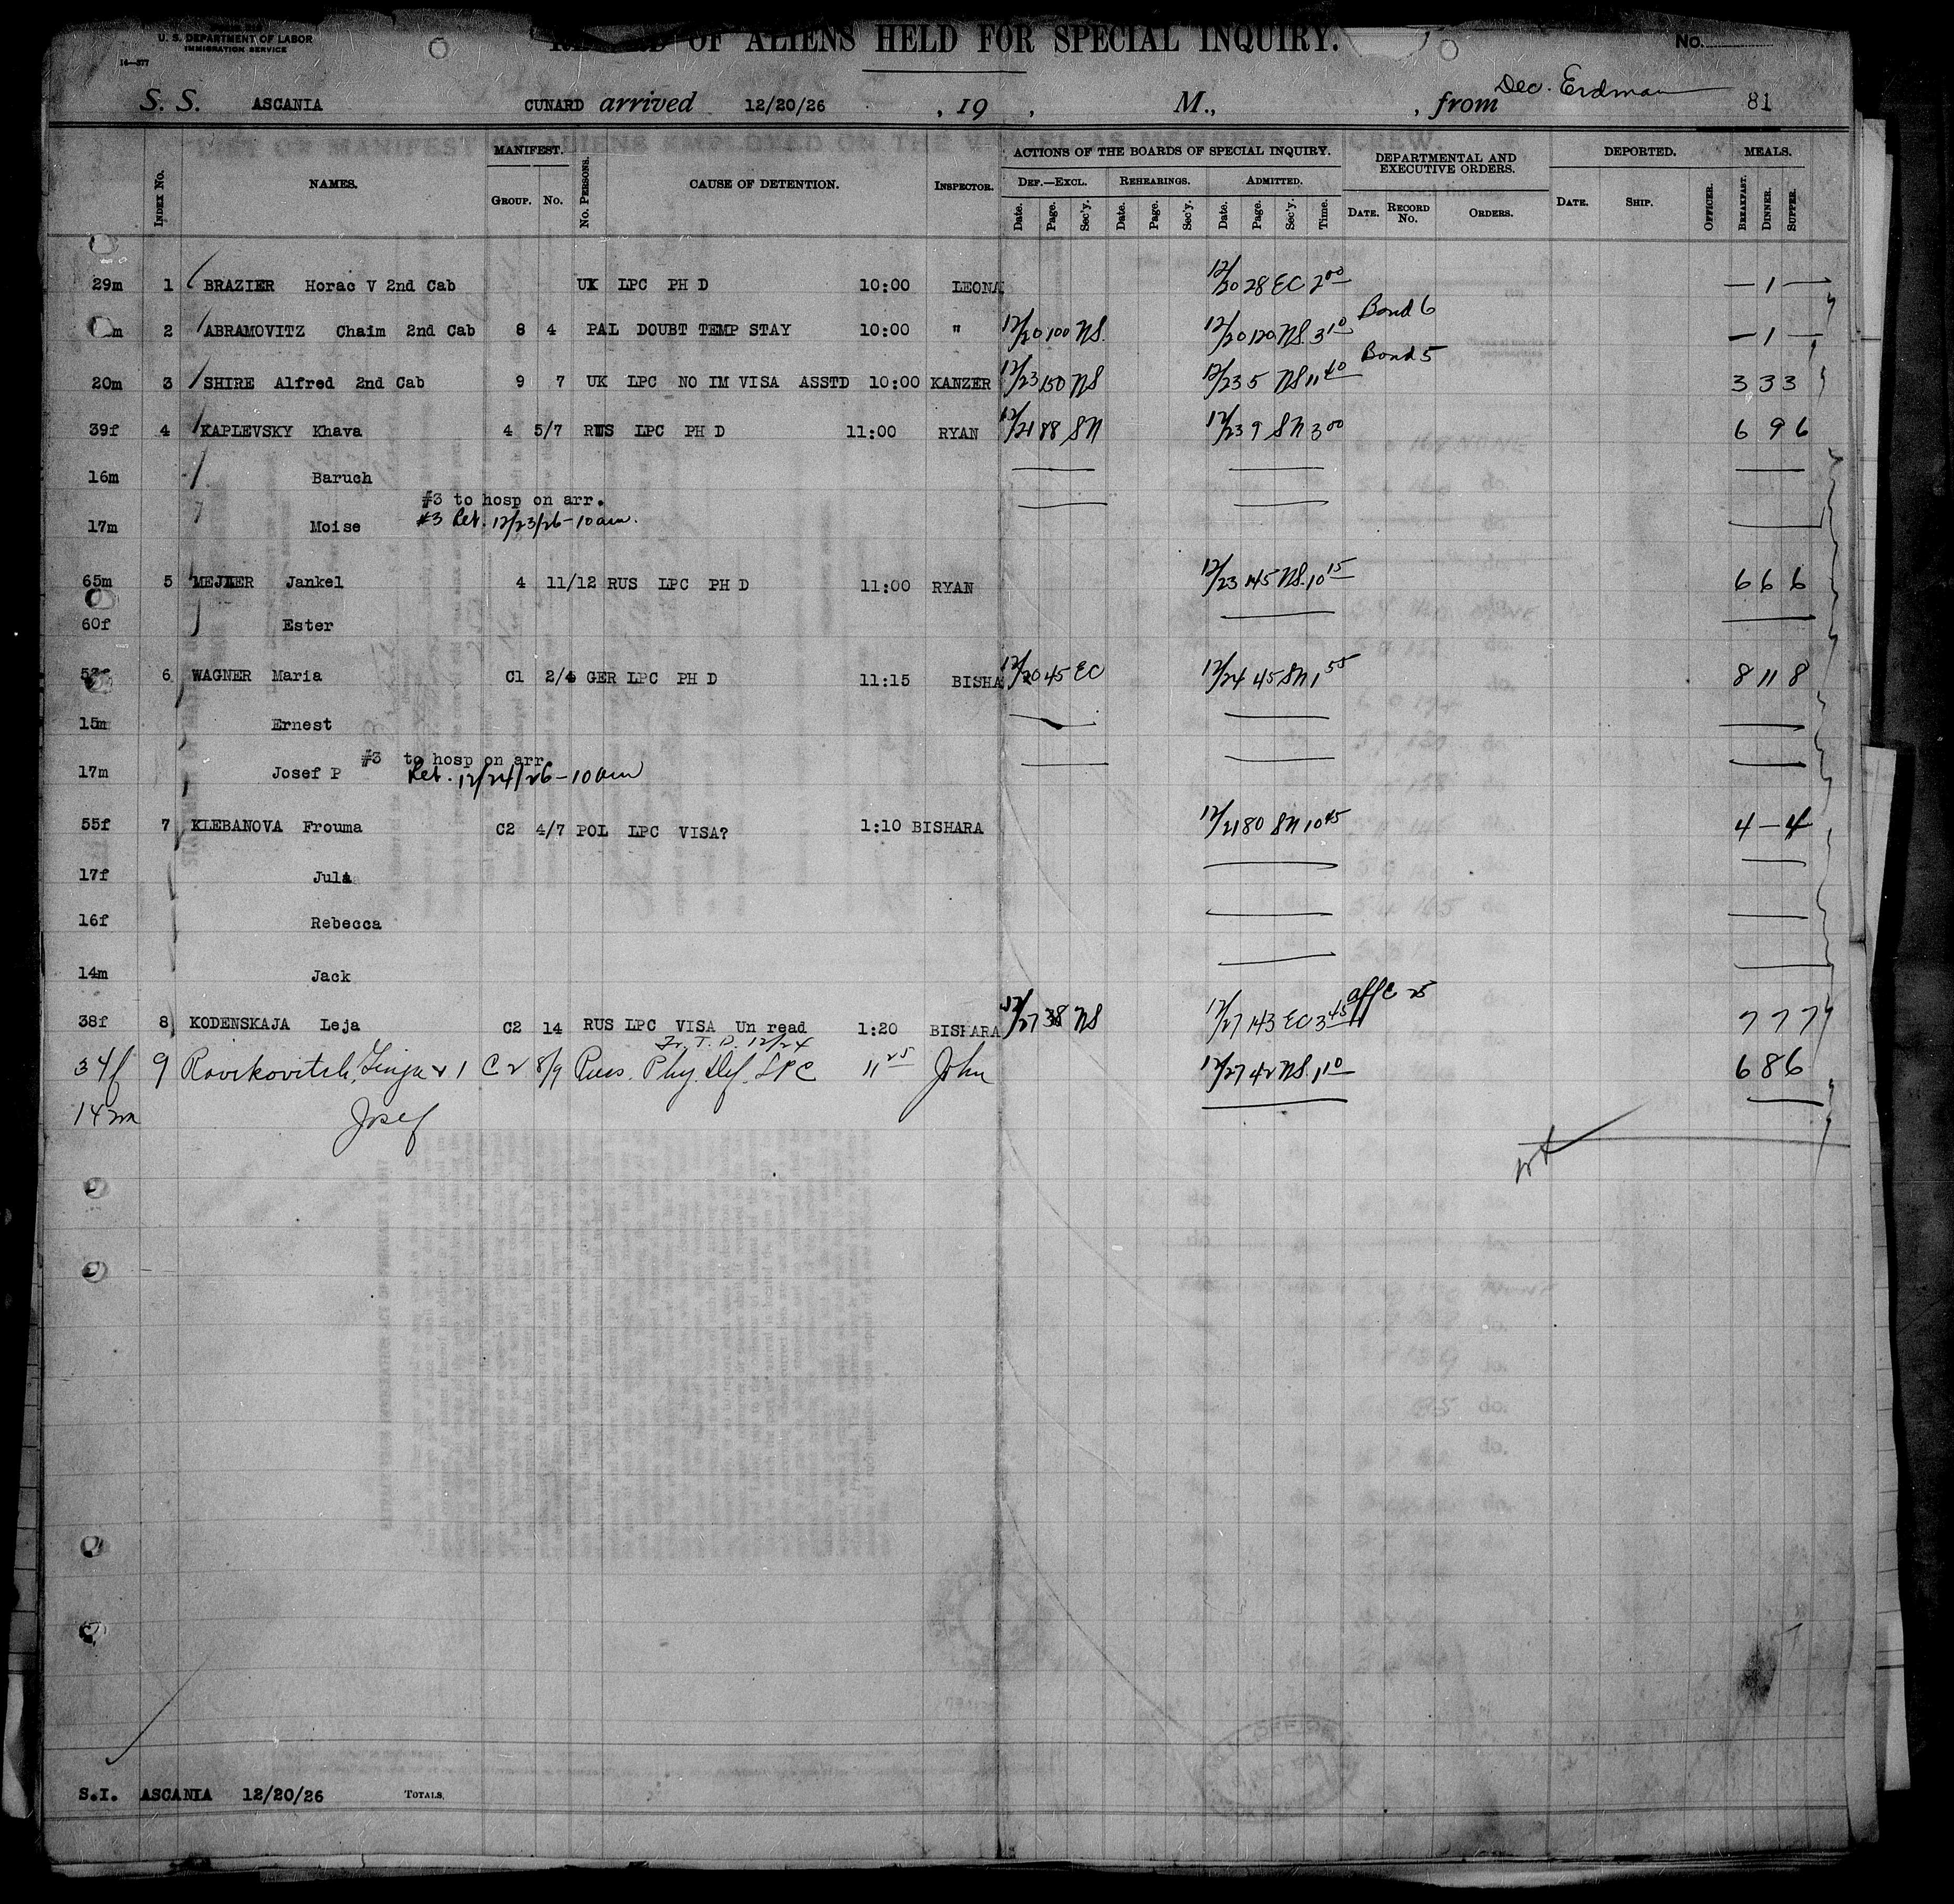 U. S. DEPARTMENT OF LABOR
IMMIGRATION SERVICE
16—377
RECORD OF ALIENS HELD FOR SPECIAL INQUIRY.
No.
S. S. ASCANIA CUNARD arrived 12/20/26 , 19 , M., , from Dec. Erdman 81
Index No. NAMES. MANIFEST. Group. No. No. Persons. CAUSE OF DETENTION. Inspector. ACTIONS OF THE BOARDS OF SPECIAL INQUIRY. DEPARTMENTAL AND EXECUTIVE ORDERS. DEPORTED. MEALS.
Def.—Excl. Rehearings. Admitted.
Date. Page. Sec'y. Date. Page. Sec'y. Date. Page. Sec'y. Time. Date. Record No. Orders. Date. Ship. Officer. Breakfast. Dinner. Supper.
29m 1 BRAZIER Horac V 2nd Cab UK LPC PH D 10:00 LEONA 12/20 28 EC 2 00 — 1 —
m 2 ABRAMOVITZ Chaim 2nd Cab 8 4 PAL DOUBT TEMP STAY 10:00 " 12/20 100 NS. 12/20 120 NS. 3 10 Bond 6 — 1 —
20m 3 SHIRE Alfred 2nd Cab 9 7 UK LPC NO IM VISA ASSTD 10:00 KANZER 12/23 150 NS 12/23 5 NS 11 40 Bond 5 3 3 3
39f 4 KAPLEVSKY Khava 4 5/7 RUS LPC PH D 11:00 RYAN 12/21 88 SN 12/23 9 SN 3 00 6 9 6
16m Baruch
#3 to hosp on arr.
17m Moise #3 Ret. 12/23/26 - 10 am.
65m 5 MEJLER Jankel 4 11/12 RUS LPC PH D 11:00 RYAN 12/23 145 NS. 10 15 6 6 6
60f Ester
6 WAGNER Maria C1 2/4 GER LPC PH D 11:15 BISHA 12/20 45 EC 12/24 45 SN 1 55 8 11 8
15m Ernest
#3 to hosp on arr
17m Josef P Ret. 12/24/26 - 10 am
55f 7 KLEBANOVA Frouma C2 4/7 POL LPC VISA? 1:10 BISHARA 12/21 80 SN 10 45 4 — 4
17f Jula
16f Rebecca
14m Jack
38f 8 KODENSKAJA Leja C2 14 RUS LPC VISA Un read 1:20 BISHARA 12/27 38 NS 12/27 143 EC 3 45 aff C 25 7 7 7
T. D. 12/24
34f 9 Ravikovitch, Zinja + 1 C 2 8/9 Russ. Phy. Def. LPC 11 25 John 12/27 42 NS. 1 10 6 8 6
14m Josef
S.I. ASCANIA 12/20/26 Totals.